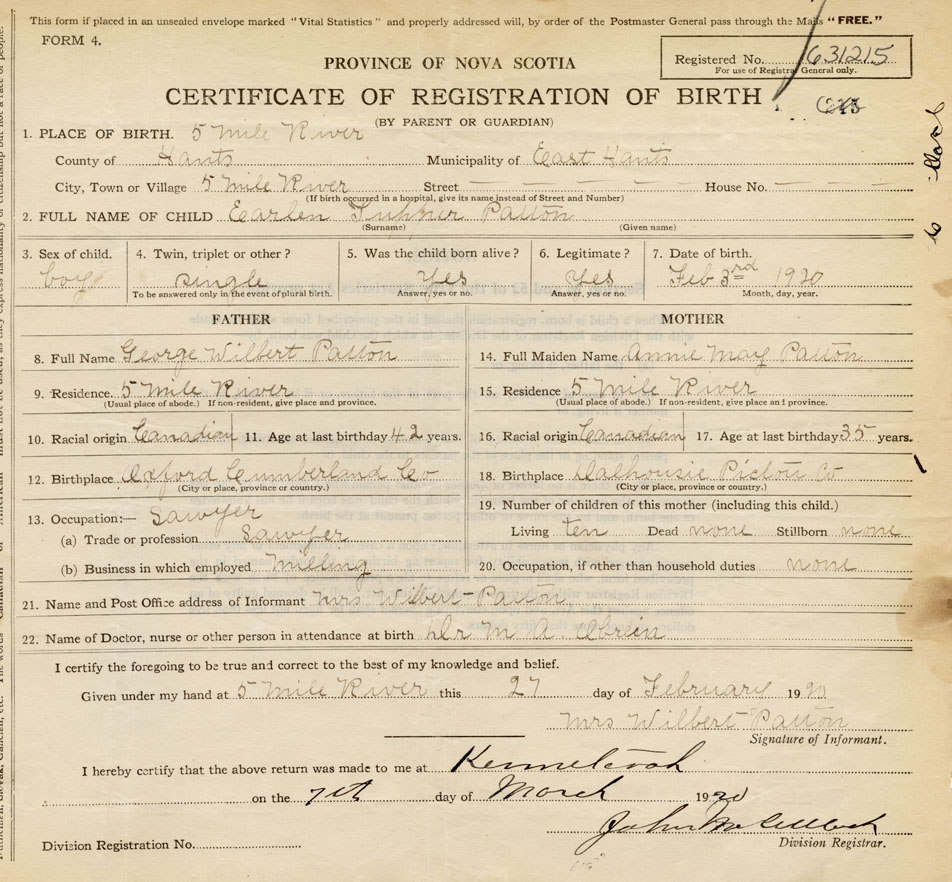 This form if placed in an unsealed envelope marked "Vital Statistics" and properly addressed will, by order of the Postmaster General pass through the Mails "FREE."
FORM 4.
Registered No. 631215
For use of Registrar General only.
PROVINCE OF NOVA SCOTIA
CERTIFICATE OF REGISTRATION OF BIRTH
(BY PARENT OR GUARDIAN)
1. PLACE OF BIRTH. 5 Mile River
County of Hants Municipality of East Hants
City, Town or Village 5 Mile River Street — — — — House No. — — —
(If birth occurred in a hospital, give its name instead of Street and Number)
2. FULL NAME OF CHILD Earlen Tupper Patton
(Surname) (Given name)
3. Sex of child. boy
4. Twin, triplet or other? single
To be answered only in the event of plural birth.
5. Was the child born alive? Yes
Answer, yes or no.
6. Legitimate? Yes
Answer, yes or no.
7. Date of birth. Feb 3rd 1920
Month, day, year.
FATHER
8. Full Name George Wilbert Patton
9. Residence. 5 Mile River
(Usual place of abode.) If non-resident, give place and province.
10. Racial origin Canadian 11. Age at last birthday 42 years.
12. Birthplace Oxford Cumberland Co
(City or place, province or country.)
13. Occupation:— Sawyer
(a) Trade or profession Sawyer
(b) Business in which employed Milling
MOTHER
14. Full Maiden Name Annie May Patton
15. Residence 5 Mile River
(Usual place of abode.) If non-resident, give place and province.
16. Racial origin Canadian 17. Age at last birthday 35 years.
18. Birthplace Dalhousie Pictou Co
(City or place, province or country.)
19. Number of children of this mother (including this child.)
Living ten Dead none Stillborn none
20. Occupation, if other than household duties none
21. Name and Post Office address of Informant Mrs Wilbert Patton
22. Name of Doctor, nurse or other person in attendance at birth Dr M A Obrein
I certify the foregoing to be true and correct to the best of my knowledge and belief.
Given under my hand at 5 Mile River this 27 day of February 1920
Mrs Wilbert Patton
Signature of Informant.
I hereby certify that the above return was made to me at Kennetcook
on the 7th day of March 1920
John
Division Registration No. Division Registrar.